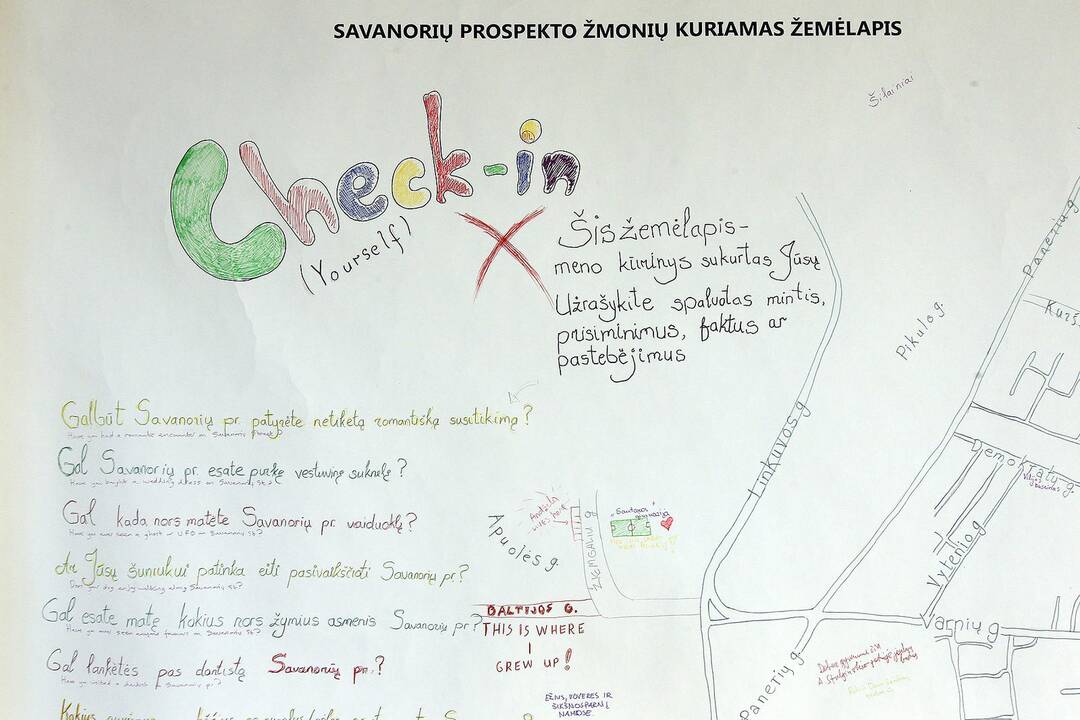 SAVANORIŲ PROSPEKTO ŽMONIŲ KURIAMAS ŽEMĖLAPIS
Šilainiai
Check-in
(Yourself)
Šis žemėlapis-
meno kūrinys sukurtas Jūsų
Užrašykite spalvotas mintis,
prisiminimus, faktus ar
pastebėjimus
Panerių g.
Pikulo g.
Kurš
Linkuvos g
Demokratų g.
Vytenio g
Varnių g
Panerių g.
Galbūt Savanorių pr. patyrėte netikėtą romantišką susitikimą?
Have you had a romantic encounter on Savanorių Street?
Gal Savanorių pr. esate pirkę vestuvinę suknelę?
Have you bought a wedding dress on Savanorių St.?
Gal kada nors matėte Savanorių pr. vaiduoklį?
Have you ever seen a ghost or UFO on Savanorių St?
Ar Jūsų šuniukui patinka eiti pasivaikščioti Savanorių pr.?
Does your dog enjoy walking along Savanorių St?
Gal esate matę kokius nors žymius asmenis Savanorių pr?
Have you ever seen anyone famous on Savanorių St?
Gal lankėtės pas dantistą Savanorių pr.?
Have you visited a dentist on Savanorių pr?
Apuolės g.
ŽIEMGALIŲ g
"Santaros gimnazija"
BALTIJOS G.
THIS IS WHERE
I
GREW UP!
EŽYS, VOVERĖS IR
ŠIKŠNOSPARNIŲ
NAMOSE.